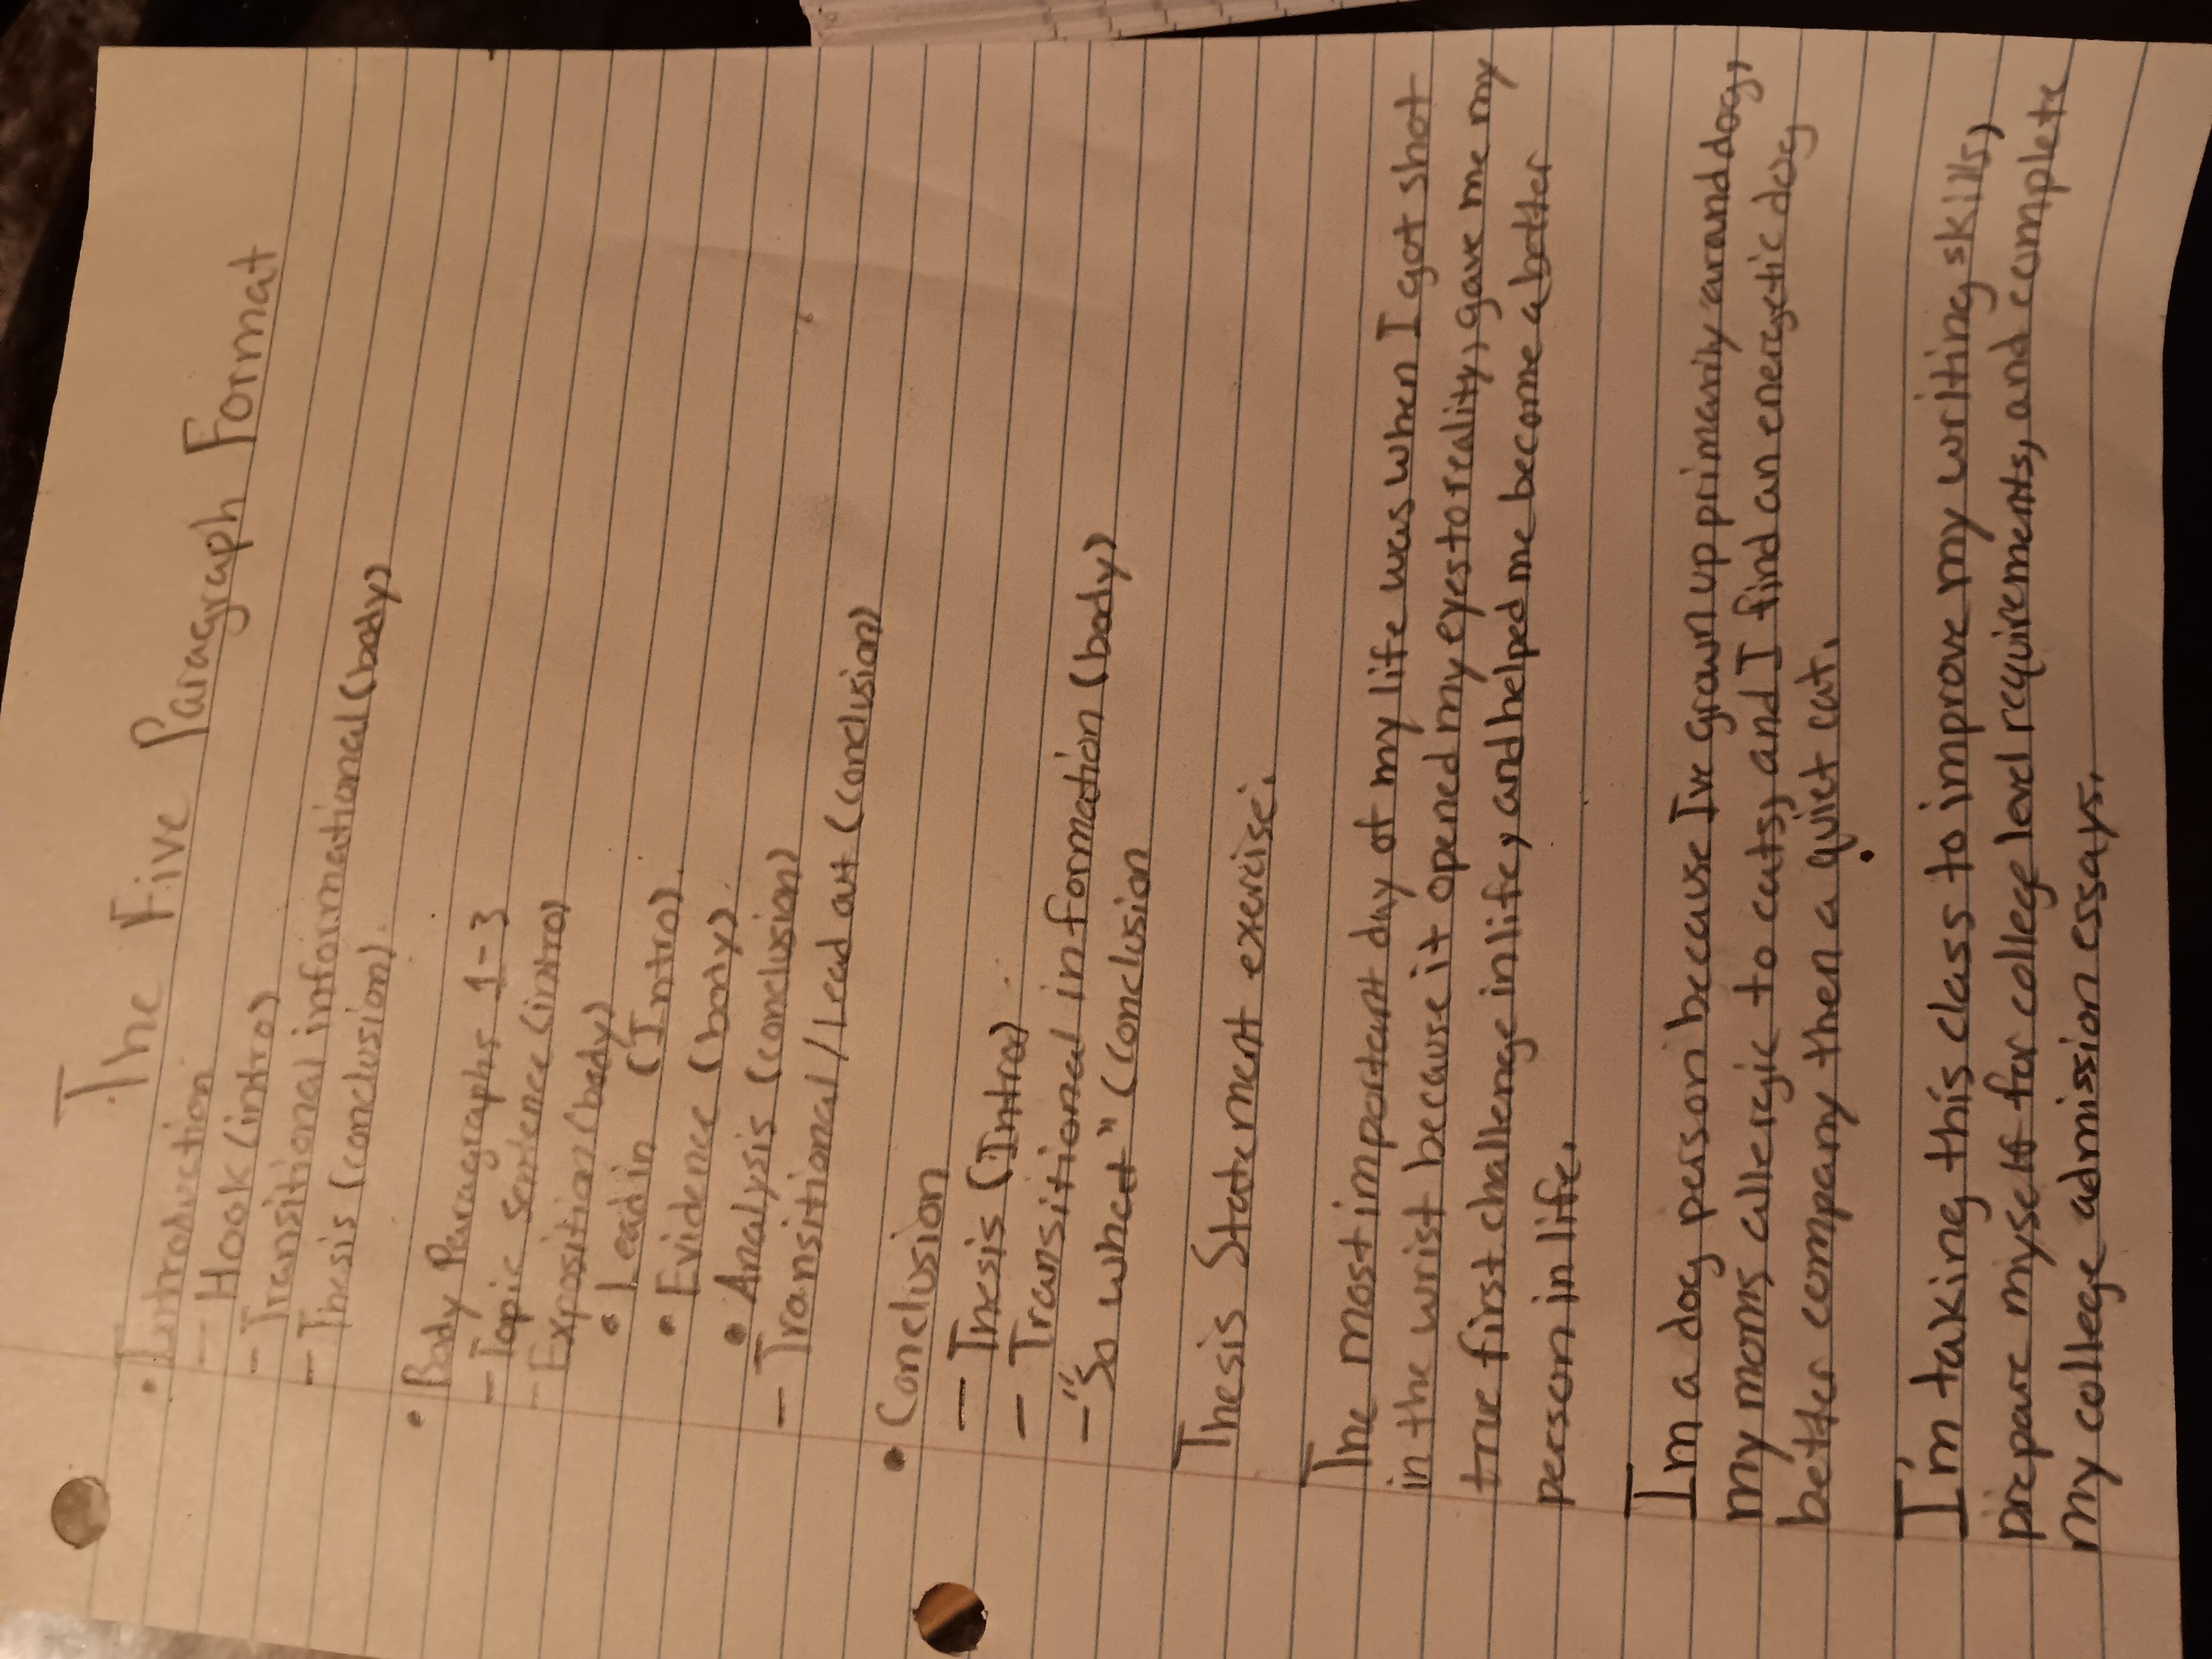 The Five Paragraph Format
• Introduction
- Hook (intro)
- Transitional informational (body)
- Thesis (conclusion).
• Body Paragraphs 1-3
- Topic sentence (intro)
- Exposition (body)
• Lead in (Intro).
• Evidence (body).
• Analysis (conclusion)
- Transitional / Lead out (conclusion)
• Conclusion
- Thesis (Intro)
- Transitional information (body)
- "So what" (conclusion
Thesis Statement exercise.
The most important day of my life was when I got shot
in the wrist because it opened my eyes to reality, gave me my
true first challenge in life, and helped me become a better
person in life.
Im a dog person because I've grown up primarily around dogs,
my moms allergic to cats, and I find an energetic dog
better company then a quiet cat.
I'm taking this class to improve my writing skills,
prepare myself for college level requirements, and complete
my college admission essays.